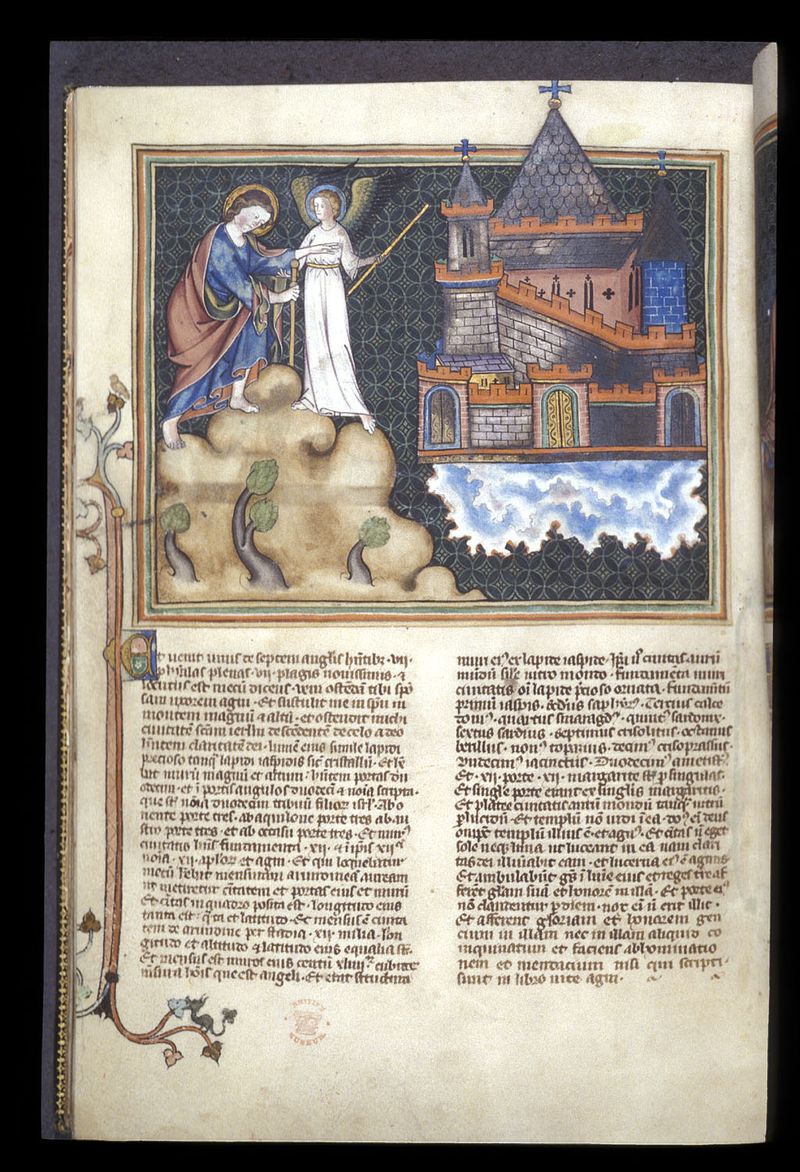 Et venit unus de septem anglis hñtibꝫ · vij ·
phialas plenas · vij · plagis nouissimis · ⁊
locutus est mecū dicens · veni ostendā tibi spō
sam uxorem agni · Et sustulit me in spū in
montem magnū ⁊ altū · et ostendit michi
ciuitatē scām ierlm̄ descēdentē de celo a deo
hñtem claritatē dei · lumē eius simile lapidi
precioso tanq̄ lapidi iaspidis sic̄ cristallū · Et hē
bat murū magnū et altum · hñtem portas duo
decim · et ī portis angulos duodeci ⁊ noīa scripta ·
que sꝉ noīa duodecim tribuū filioꝝ isrl̄ · Ab o
riente porte tres · ab aquilone porte tres · ab au
stro porte tres · et ab occasu porte tres · Et murꝰ
ciuitatis hñs fundamenta · xij · ⁊ ī ipīs xij
noīa · xij · aplōꝝ et agni · Et qui loquebatur
mecū hēbat mensurā arundineā auream
ut metiretur ciuitatem et portas eius et murū
Et ciuitas in quadro posita est · longitudo eius
tanta est · q̄ta et latitudo · Et mensus ē ciuita
tem de arundine per stadia · xij · milia · lon
gitudo et altitudo ⁊ latitudo eius equalia sꝉ ·
Et mensus est muros eius centū xliiij cubitoꝝ
mēsura hoīs que est angeli · Et erat structura
muri eiꝰ ex lapide iaspide · Ip̄a ū ciuitas aurū
mūdū sil̄e uitro mondo · fundamēta muri
ciuitatis oī lapide p̄cioso ornata · fundamētū
primū iaspis · sc̄dus saphyrꝰ · Tercius calce
doniꝰ · quartus smaragdꝰ · quintꝰ sardonix ·
sextus sardius · septimus crisolitus · octauus
berillus · nonꝰ topazius · decimꝰ crisoprassus ·
Vndecimꝰ iacinctus · Duodecimꝰ ametistꝰ ·
Et · xij · porte · xij · margarite sꝉ p̄ singulas ·
Et single porte erant ex singlis margaritis ·
Et platee ciuitatis aurū mondū tanq̄ uitrū
p̄lucidū · Et templū nō uidi ī ea · dōs eī deus
onīpō templū illius ē · et agnꝰ · Et ciuitas nō eget
sole neqꝫ luna ut luceant in ea nam clari
tas dei illuīabit eam · et lucerna eiꝰ ē agnus
Et ambulabūt gē̄s ī luīe eius et reges tre af
ferēt glām suā et honorē in illā · Et porte eiꝰ
nō claudentur p̄ diem · nox eī nō erit illic ·
Et afferent gloriam et honorem gen
cium in illam nec in illam aliquid co
inquinatum et faciens abhominatio
nem et mendacium nisi qui scripti ·
sunt in libro uite agni ·
BRITISH
MUSEUM